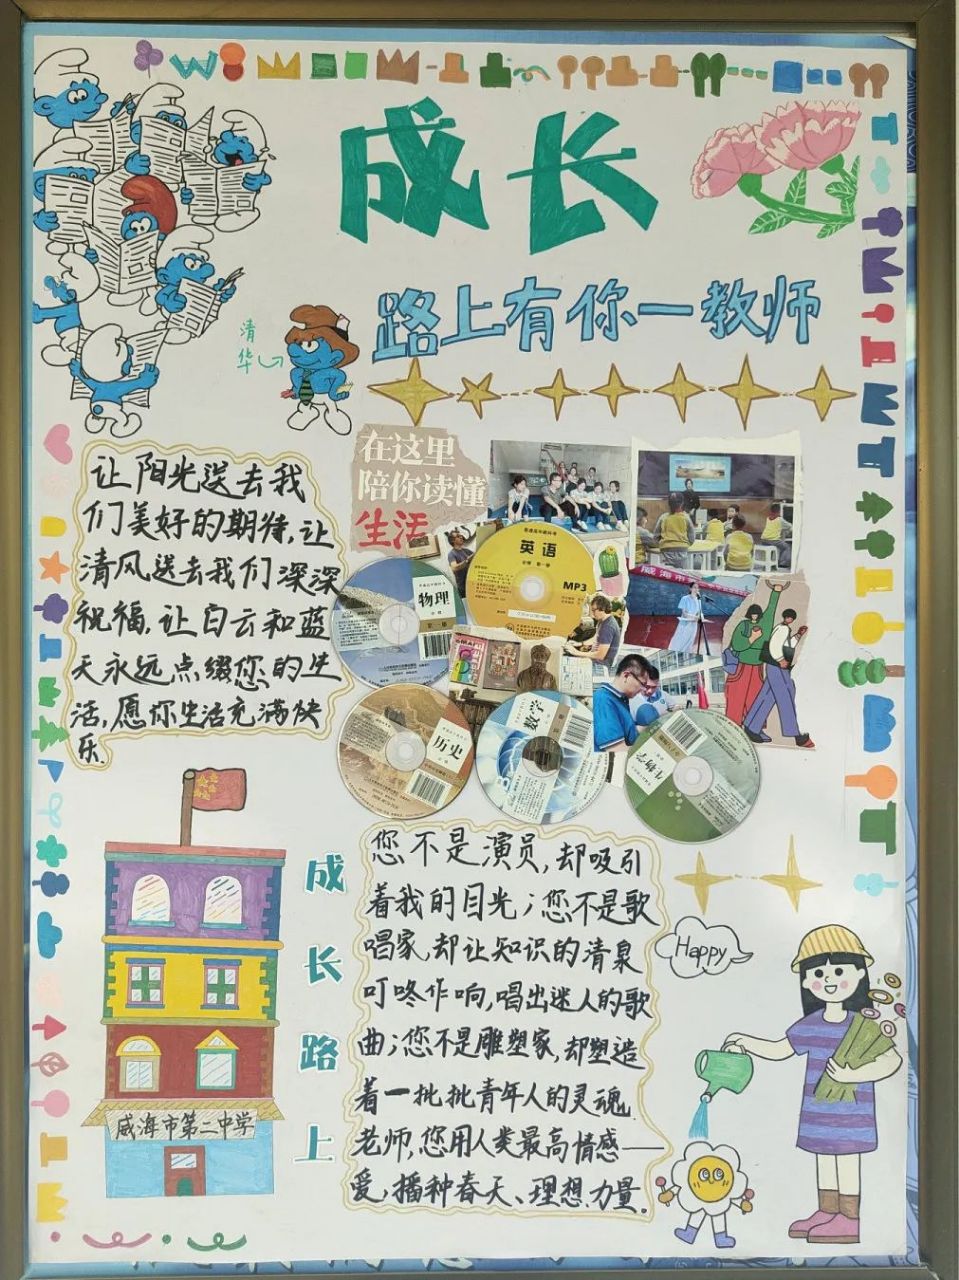 成长
路上有你一教师
清
华
让阳光送去我
们美好的期待,让
清风送去我们深深
祝福,让白云和蓝
天永远点缀您的生
活,愿你生活充满快
乐.
在这里
陪你读懂
生活
英语
MP3
物理
历史
数学
生物学
威海市
威海市第二中学
成
长
路
上
您不是演员,却吸引
着我的目光;您不是歌
唱家,却让知识的清泉
叮咚作响,唱出迷人的歌
曲;您不是雕塑家,却塑造
着一批批青年人的灵魂
老师,您用人类最高情感——
爱,播种春天、理想、力量.
Happy